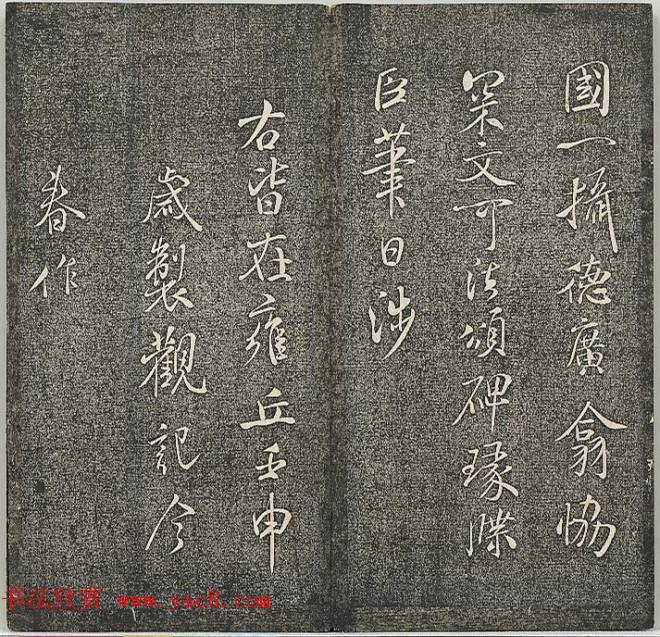 國一攝德廣翕協
文可法頌碑瑑牒
臣筆日涉
右皆在雍丘壬申
歲製觀記今
春作
书法欣赏 www.yac8.com